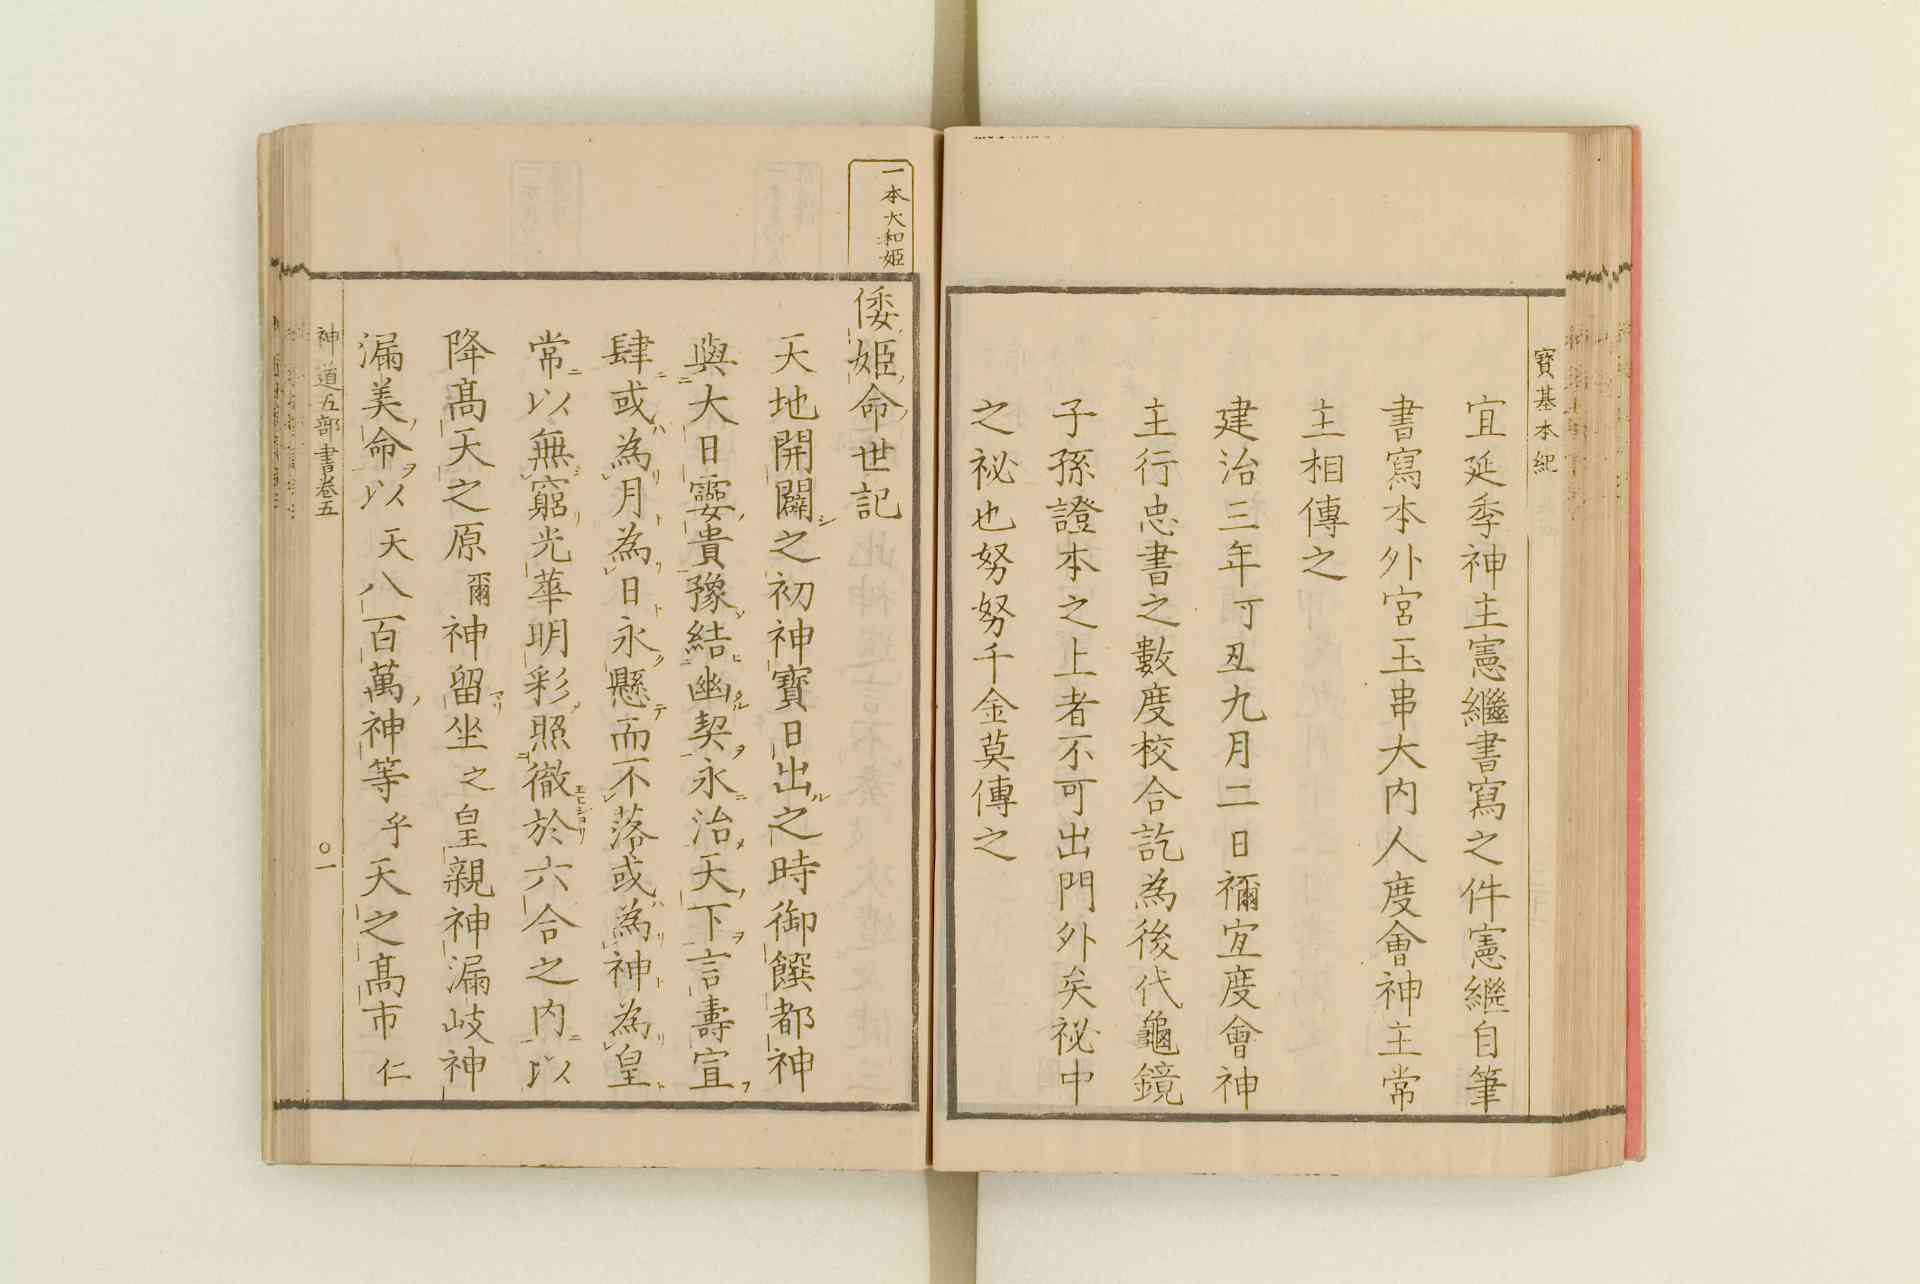 寶基本紀
宜延季神主憲繼書寫之件憲繼自筆
書寫本外宮玉串大内人度會神主常
主相傳之
建治三年丁丑九月二日禰宜度會神
主行忠書之數度校合訖為後代龜鏡
子孫證本之上者不可出門外矣祕中
之祕也努努千金莫傳之
一本大和姫
倭姫命世記
天地開闢之初神寶日出之時御饌都神
與大日孁貴豫結幽契永治天下言壽宣
肆或為月為日永懸而不落或為神為皇
常以無窮光華明彩照徹於六合之内以
降高天之原爾神留坐之皇親神漏岐神
漏美命以天八百萬神等乎天之高市仁
神道五部書卷五
〇一